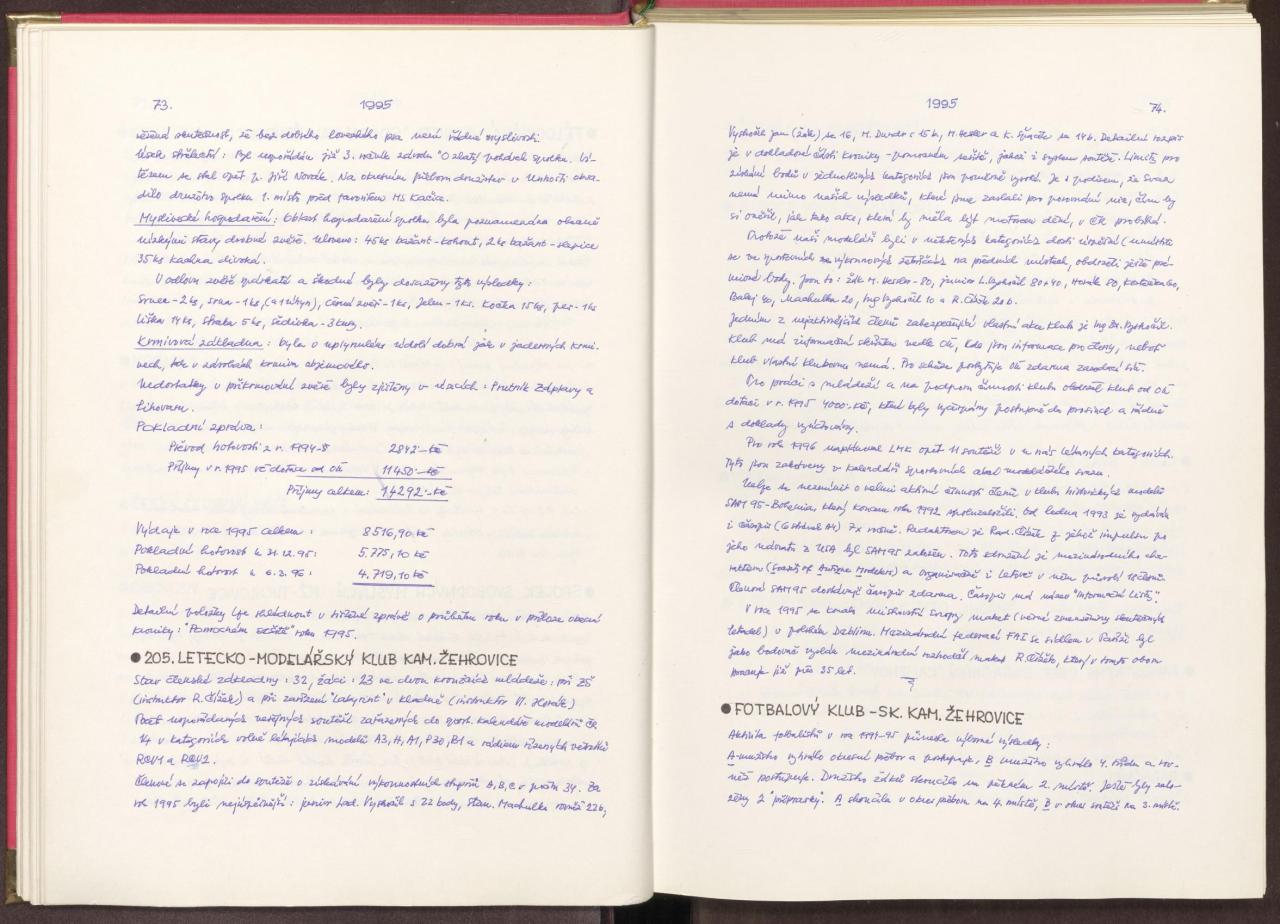 73. 1995
věřená skutečnost, že bez dobrého loveckého psa není řádné myslivosti.
Úsek střelectví: Byl uspořádán již 3. ročník závodu "O zlatý pohárek spolku. Ví-
tězem se stal opět p. Jiří Novák. Na okresním přeboru družstev v Unhošti obsa-
dilo družstvo spolku 1. místo před favoritem MS Kačice.
Myslivecké hospodaření: Oblast hospodaření spolku byla poznamenána obecně
nízkými stavy drobné zvěře. Uloveno: 45 ks bažant-kohout, 2 ks bažant-slepice
35 ks kachna divoká.
U odlovu zvěře spárkaté a škodné byly dosaženy tyto výsledky:
Srnec-2 ks, srna-1 ks, (a 1 úhyn), černá zvěř-1 ks, Jelen-1 ks. Kočka 15 ks, pes-1 ks
Liška 14 ks, straka 5 ks, 3 kusy.
Krmivová základna: byla v uplynulém období dobrá jak v jaderných krmi-
vech, tak v zásobách krmiv objemového.
Nedostatky v přikrmování zvěře byly zjištěny v úsecích: Prutník Zdptavy a
Lihovaru.
Pokladní zpráva:
Převod hotovosti z r. 1994-8 2842.-Kč
Příjmy v r. 1995 vč. dotace od OÚ 11450.-Kč
Příjmy celkem: 14292.-Kč
Výdaje v roce 1995 celkem: 8516,90 Kč
Pokladní hotovost k 31.12.95: 5.775,10 Kč
Pokladní hotovost k 6.3.96: 4.719,10 Kč
Detailní položky lze shlédnout v tištěné zprávě o průběhu roku v příloze obecní
kroniky: "Pomocném sešitě" roku 1995.
● 205. LETECKO-MODELÁŘSKÝ KLUB KAM. ŽEHROVICE
Stav členské základny: 32, žáci: 23 ve dvou kroužcích mládeže: při ZŠ
(instruktor R. Čížek) a při zařízení "Labyrint" v Kladně (instruktor Vl. Horák)
Počet uspořádaných veřejných soutěží zařazených do sport. kalendáře modelářů ČR
14 v kategoriích volně létajících modelů A3, H, A1, P30, B1 a rádiem řízených větroňů
RCV1 a RCV2.
Členové se zapojili do soutěže o získávání výkonnostních stupňů A, B, C v počtu 34. Za
rok 1995 byli nejúspěšnější: junior Lad. Vyskočil s 22 body, stan. Machulka rovněž 22b,
1995 74.
Vyskočil Jan (žák) se 16, M. Dundr s 15b, M. Hesler a K. se 14b. Detailní rozpis
je v dokladové části kroniky-pomocném sešitě, jakož i systém soutěže. Limity pro
získání bodů v jednotlivých kategoriích jsou poměrně vysoké. Je s podivem, že Svaz
nemá mimo našich výsledků, které jsme zaslali pro porovnání nic, čím by
si ověřil, jak tato akce, která by měla být motorem dění, v ČR probíhá.
Protože naši modeláři byli v některých kategoriích dosti úspěšní (umístili
se ve sportovních ve výkonnových žebříčcích na předních místech, obdrželi ještě pré-
miové body. Jsou to: žák M. Hesler-80, junior L. Vyskočil 80+40, Horák 80, Kostečka 60,
Balej 40, Machulka 20, Ing Vyskočil 10 a R. Čížek 20b.
Jedním z nejaktivnějších členů zabezpečující vlastní akce klubu je Ing Br. Vyskočil.
Klub má informační skříňku vedle OÚ, kde jsou informace pro členy, neboť
klub vlastní klubovnu nemá. Pro schůze poskytuje OÚ zdarma zasedací síň.
Pro práci s mládeží a na podporu činnosti klubu obdržel klub od OÚ
dotaci v r. 1995 4000.-Kč, které byly vyčerpány postupně do prosince a řádně
s doklady vyúčtovány.
Pro rok 1996 naplánoval LMK opět 11 soutěží v u nás létaných kategoriích.
Tyto jsou zakotveny v kalendáři sportovních akcí modelářského svazu.
Nelze se nezmínit o velmi aktivní činnosti členů v klubu historických modelů
SAM 95-Bohemia, který koncem roku 1992 spoluzaložili. Od ledna 1993 je vydáván
i časopis (6 stránek A4) 7x ročně. Redaktorem je Rad. Čížek z jehož impulsu po
jeho návratu z USA byl SAM 95 založen. Toto sdružení je mezinárodního cha-
rakteru (Society of Antique Modelers) a organizačně i letově v něm působí 10 členů.
Členové SAM 95 dostávají časopis zdarma. Časopis má název "Informační Listy".
V roce 1995 se konalo mistrovství Evropy maket (věrné zmenšeniny skutečných
letadel) v polském Deblinu. Mezinárodní federací FAI se sídlem v Paříži byl
jako bodovač vyslán mezinárodní rozhodčí maket R. Čížek, který v tomto oboru
pracuje již přes 35 let.
● FOTBALOVÝ KLUB-SK. KAM. ŽEHROVICE
Aktivita fotbalistů v roce 1994-95 přinesla výborné výsledky:
A-mužstvo vyhrálo okresní přebor a postupuje, B mužstvo vyhrálo 4. třídu a rov-
něž postupuje. Družstvo žáků skončilo na pěkném 2. místě. Ještě byly zalo-
ženy 2 "přípravky". A skončila v okres. přeboru na 4. místě, B v okres. soutěži na 3. místě.